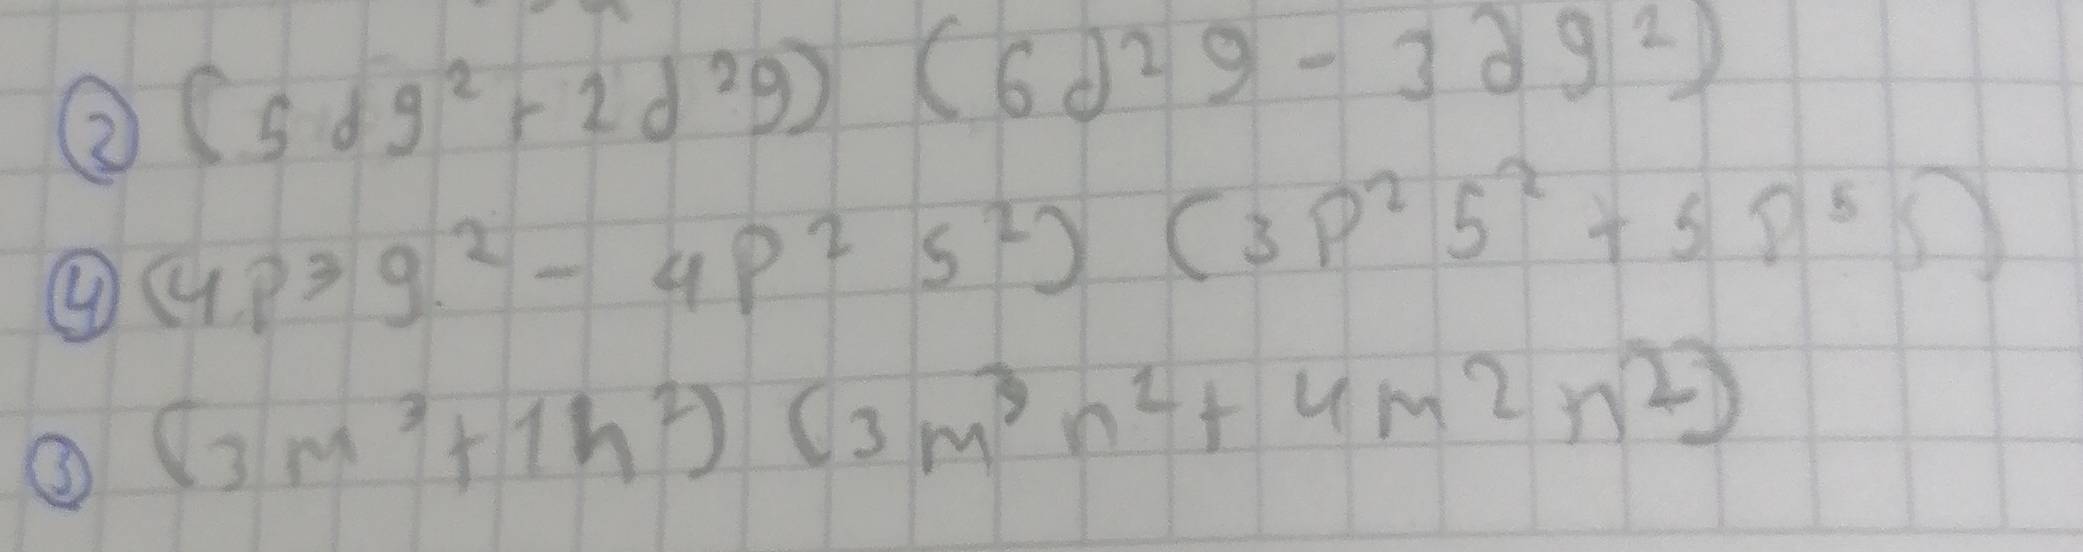 ② (5dg² + 2d²g) (6d²g - 3dg²)
④ (4p³g² - 4p²s²) (3p²s² + 5p⁵s)
③ (3m³ + 1n²) (3m³n² + 4m²n²)